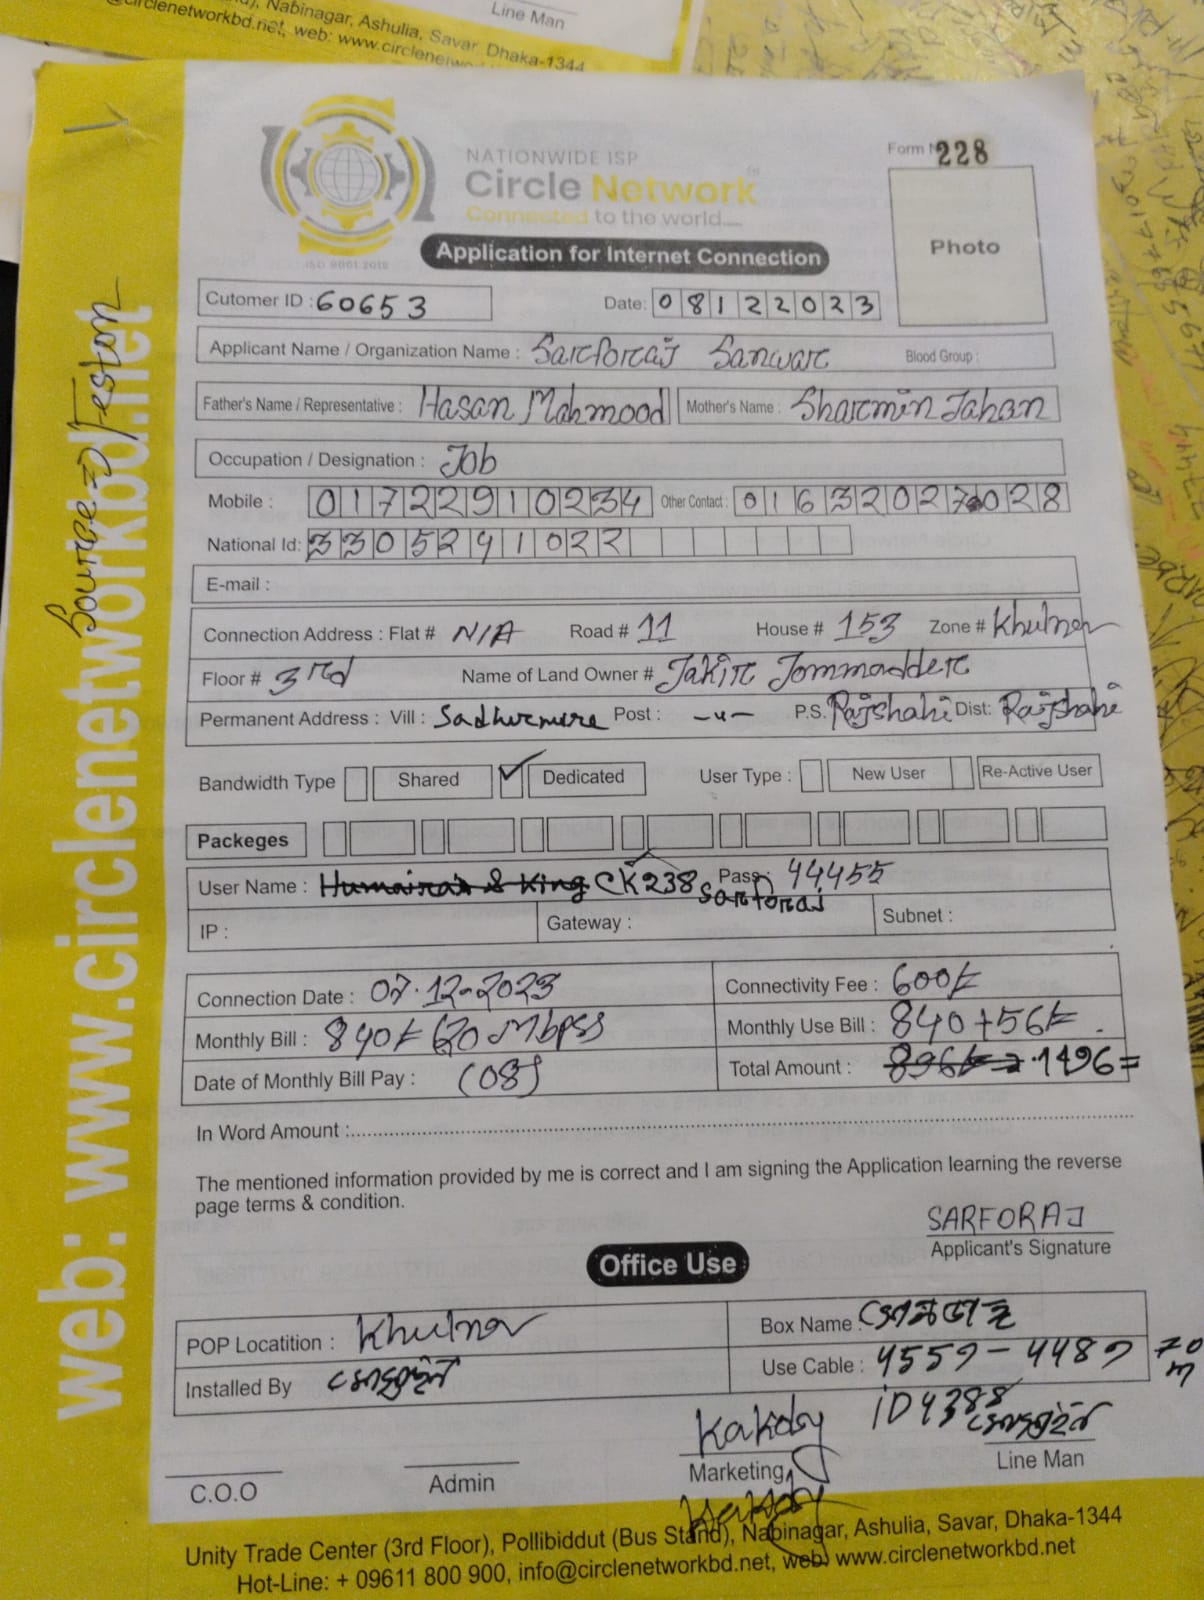 Nabinagar, Ashulia, Savar, Dhaka-1344
Line Man
web: www.circlenetworkbd.net
Source => Feston
NATIONWIDE ISP
Circle Network
Connected to the world....
ISO 9001:2015
Application for Internet Connection
Form N 228
Photo
Cutomer ID : 60653
Date: 08122023
Applicant Name / Organization Name : Sarforaj Sanwar Blood Group :
Father's Name / Representative : Hasan Mahmood Mother's Name : Sharmin Jahan
Occupation / Designation : Job
Mobile : 01722910234 Other Contact : 01632027028
National Id: 3305241022
E-mail :
Connection Address : Flat # N/A Road # 11 House # 153 Zone # Khulner
Floor # 3rd Name of Land Owner # Jakir Jommadder
Permanent Address : Vill : Post : -"- P.S. Rajshahi Dist: Rajshahi
Bandwidth Type Shared ✓ Dedicated User Type : New User Re-Active User
Packeges
User Name : CK238 Sarforaj Pass : 44455
IP : Gateway : Subnet :
Connection Date : 07.12-2023 Connectivity Fee : 600/=
Monthly Bill : 840/= Mbps Monthly Use Bill : 840+56/=
Date of Monthly Bill Pay : (08) Total Amount : 896/= → 1496=
In Word Amount :
The mentioned information provided by me is correct and I am signing the Application learning the reverse
page terms & condition.
SARFORAJ
Applicant's Signature
Office Use
POP Locatition : Khulner Box Name :
Installed By Use Cable : 4559 - 4489 70 m
Kakoly iD 4388
C.O.O Admin Marketing Line Man
Kakoly
Unity Trade Center (3rd Floor), Pollibiddut (Bus Stand), Nabinagar, Ashulia, Savar, Dhaka-1344
Hot-Line: + 09611 800 900, info@circlenetworkbd.net, web: www.circlenetworkbd.net